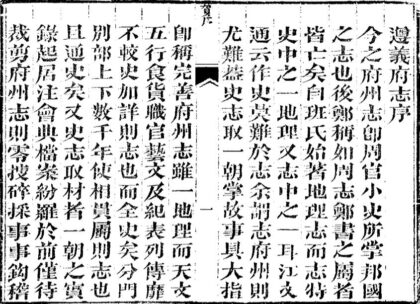 遵義府志序
今之府州志卽周官小史所掌邦國
之志也後鄭稱如周志鄭書之屬者
皆亡矣自班氏始著地理志而志特
史中之一地理又志中之一耳江文
通云作史莫難於志余謂志府州則
尤難葢史志取一朝掌故事具大指
序
一
卽稱完善府州志雖一地理而天文
五行食貨職官藝文及紀表列傳靡
不較史加詳則志也而全史矣分門
別部上下數千年使相貫屬則志也
且通史矣又史志取材者一朝之實
錄起居注會典檔案紛羅於前僅待
裁剪府州志則零搜碎採事事鉤稽